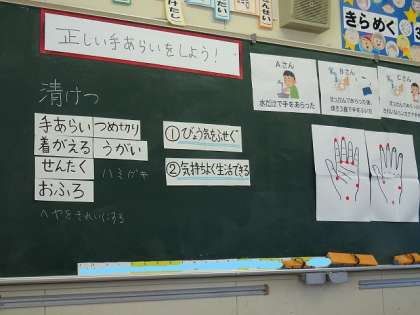 正しい手あらいをしよう！
きらめく
清けつ
手あらい
つめきり
着がえる
うがい
せんたく
ハミガキ
おふろ
ヘヤをきれいにする
①びょう気をふせぐ
②気持ちよく生活できる
Aさん
水だけで手をあらった
Bさん
Cさん